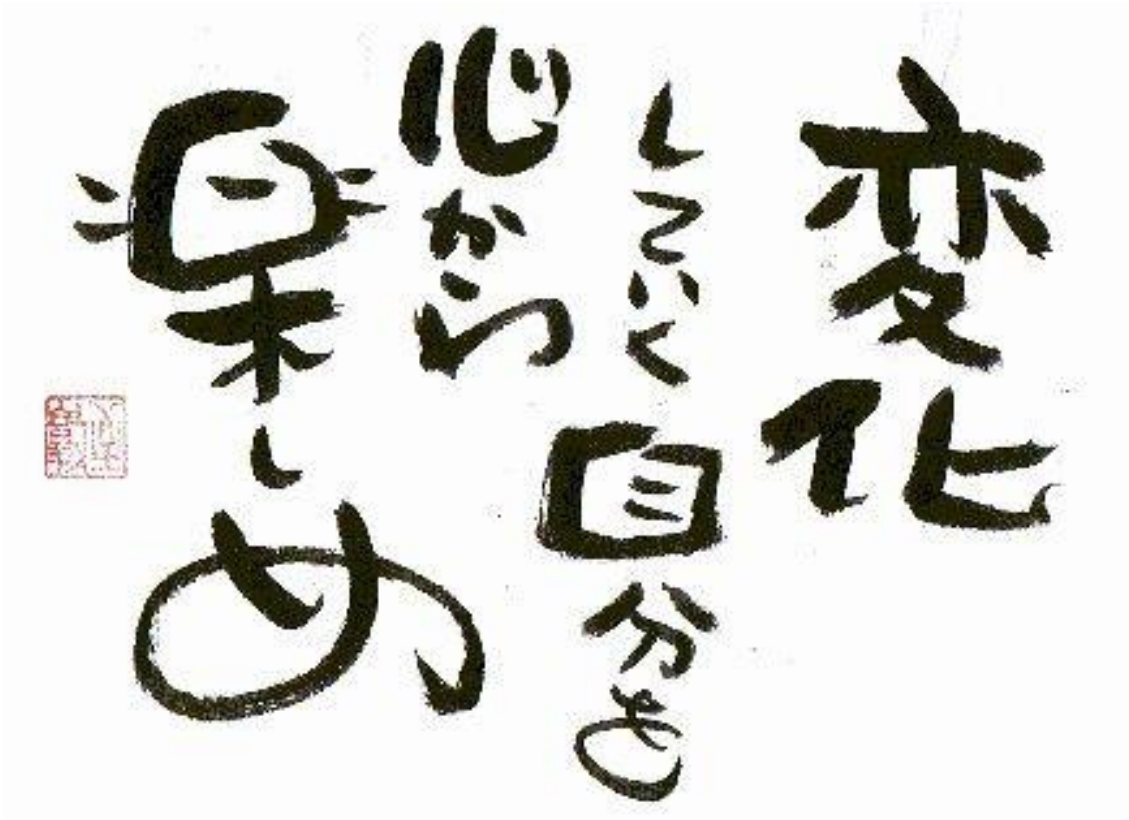 変化
していく自分を
心から
楽しめ